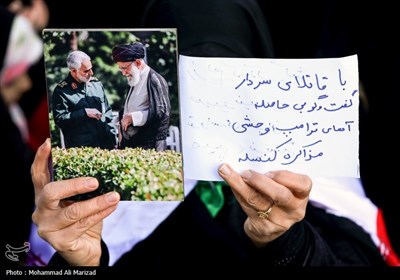 با قاتلای سردار
گفت وگو بی حاصله
آهای ترامپ وحشی
مذاکره کنسله
Photo : Mohammad Ali Marizad